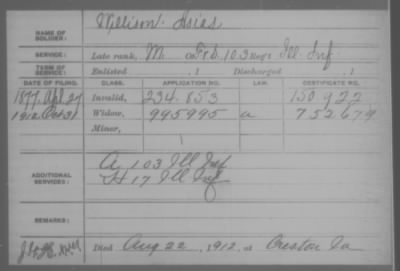 Willison Asias
NAME OF SOLDIER:
SERVICE: Late rank, M. Co F&S. 103 Reg't Ill. Inf.
TERM OF SERVICE: Enlisted , 1 Discharged , 1
DATE OF FILING. CLASS. APPLICATION NO. LAW. CERTIFICATE NO.
1877. Apl. 27 Invalid, 234.853 150922
1912 Oct 31 Widow, 995995 a 752679
Minor,
ADDITIONAL SERVICES: A 103 Ill Inf
H 17 Ill Inf
REMARKS:
Died Aug 22, 1912, at Creston Ia